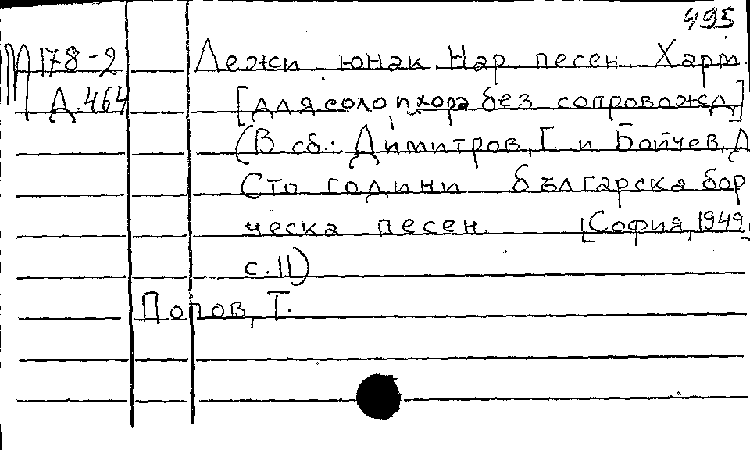 495
П178-2 Лежи юнак. Нар. песен. Харм.
Д.464 [для соло и хора без сопровожд.]
(В сб.: Димитров, Г. и Бойчев, Д
Сто години българска бор
ческа песен. [София, 1949,
с. 11)
Попов, Т.